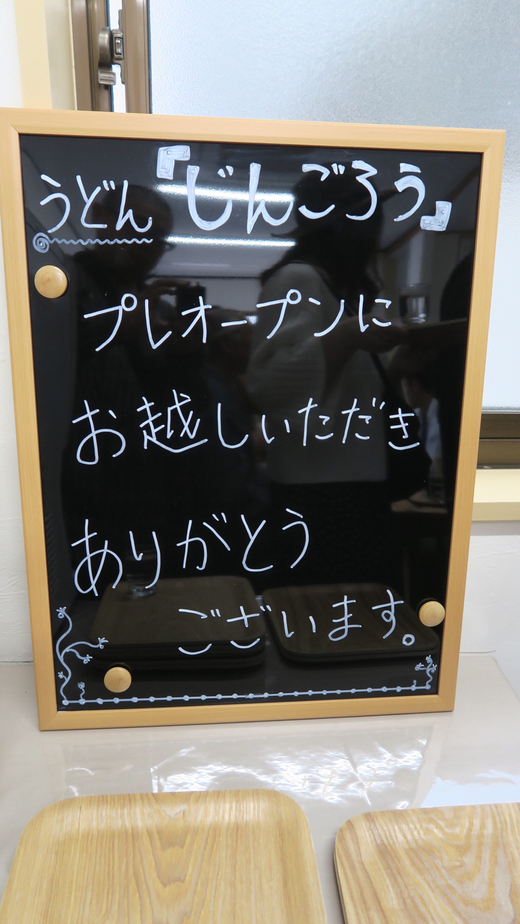 うどん『じんごろう』
プレオープンに
お越しいただき
ありがとう
ございます。